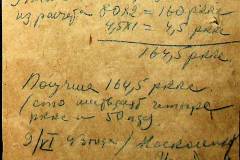 из расчета 80х2 = 160 рубл
4,5х1 = 4,5 рубл
164,5 рубл
Получил 164,5 рубл
(сто шестьдесят четыре
рубл и 50 коп)
9/VI 43 года /